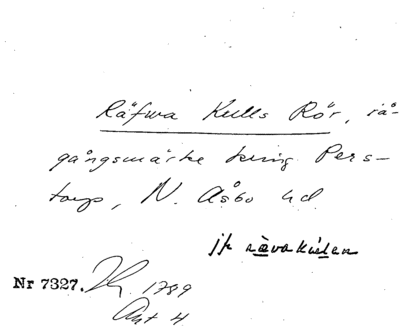 Räfwa Kulls Rör, rå-
gångsmärke kring Pers-
torp, N. Åsbo hd.
jfr rävakullen
Nr 7327. 1789
Akt 4